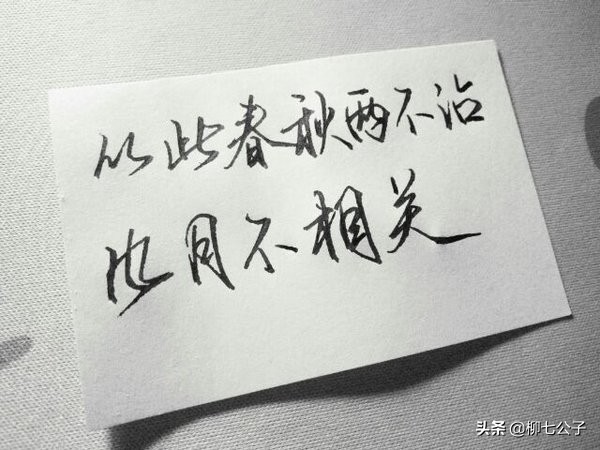 从此春秋两不沾
风月不相关
头条 @柳七公子